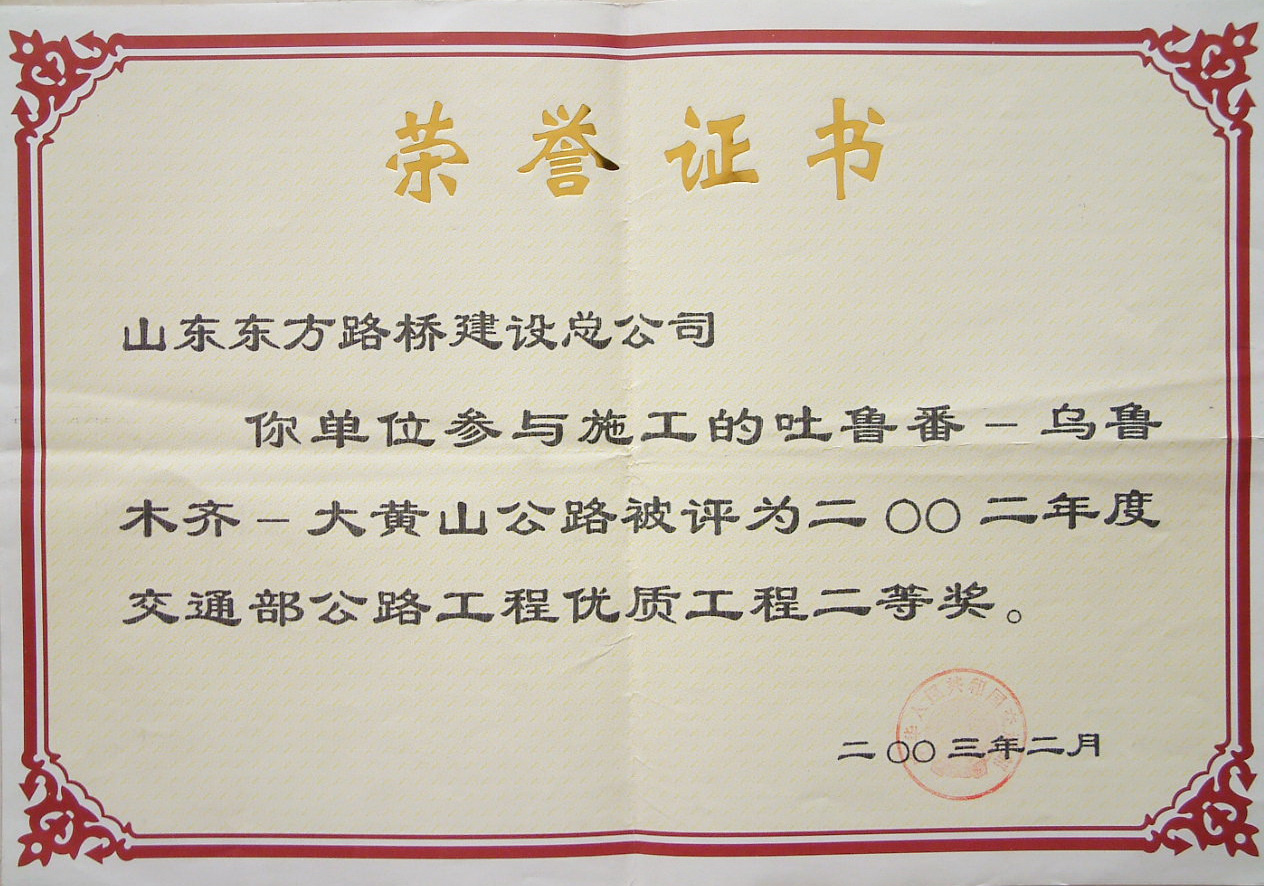 荣誉证书
山东东方路桥建设总公司
你单位参与施工的吐鲁番－乌鲁
木齐－大黄山公路被评为二〇〇二年度
交通部公路工程优质工程二等奖。
华人民共和国交
二〇〇三年二月